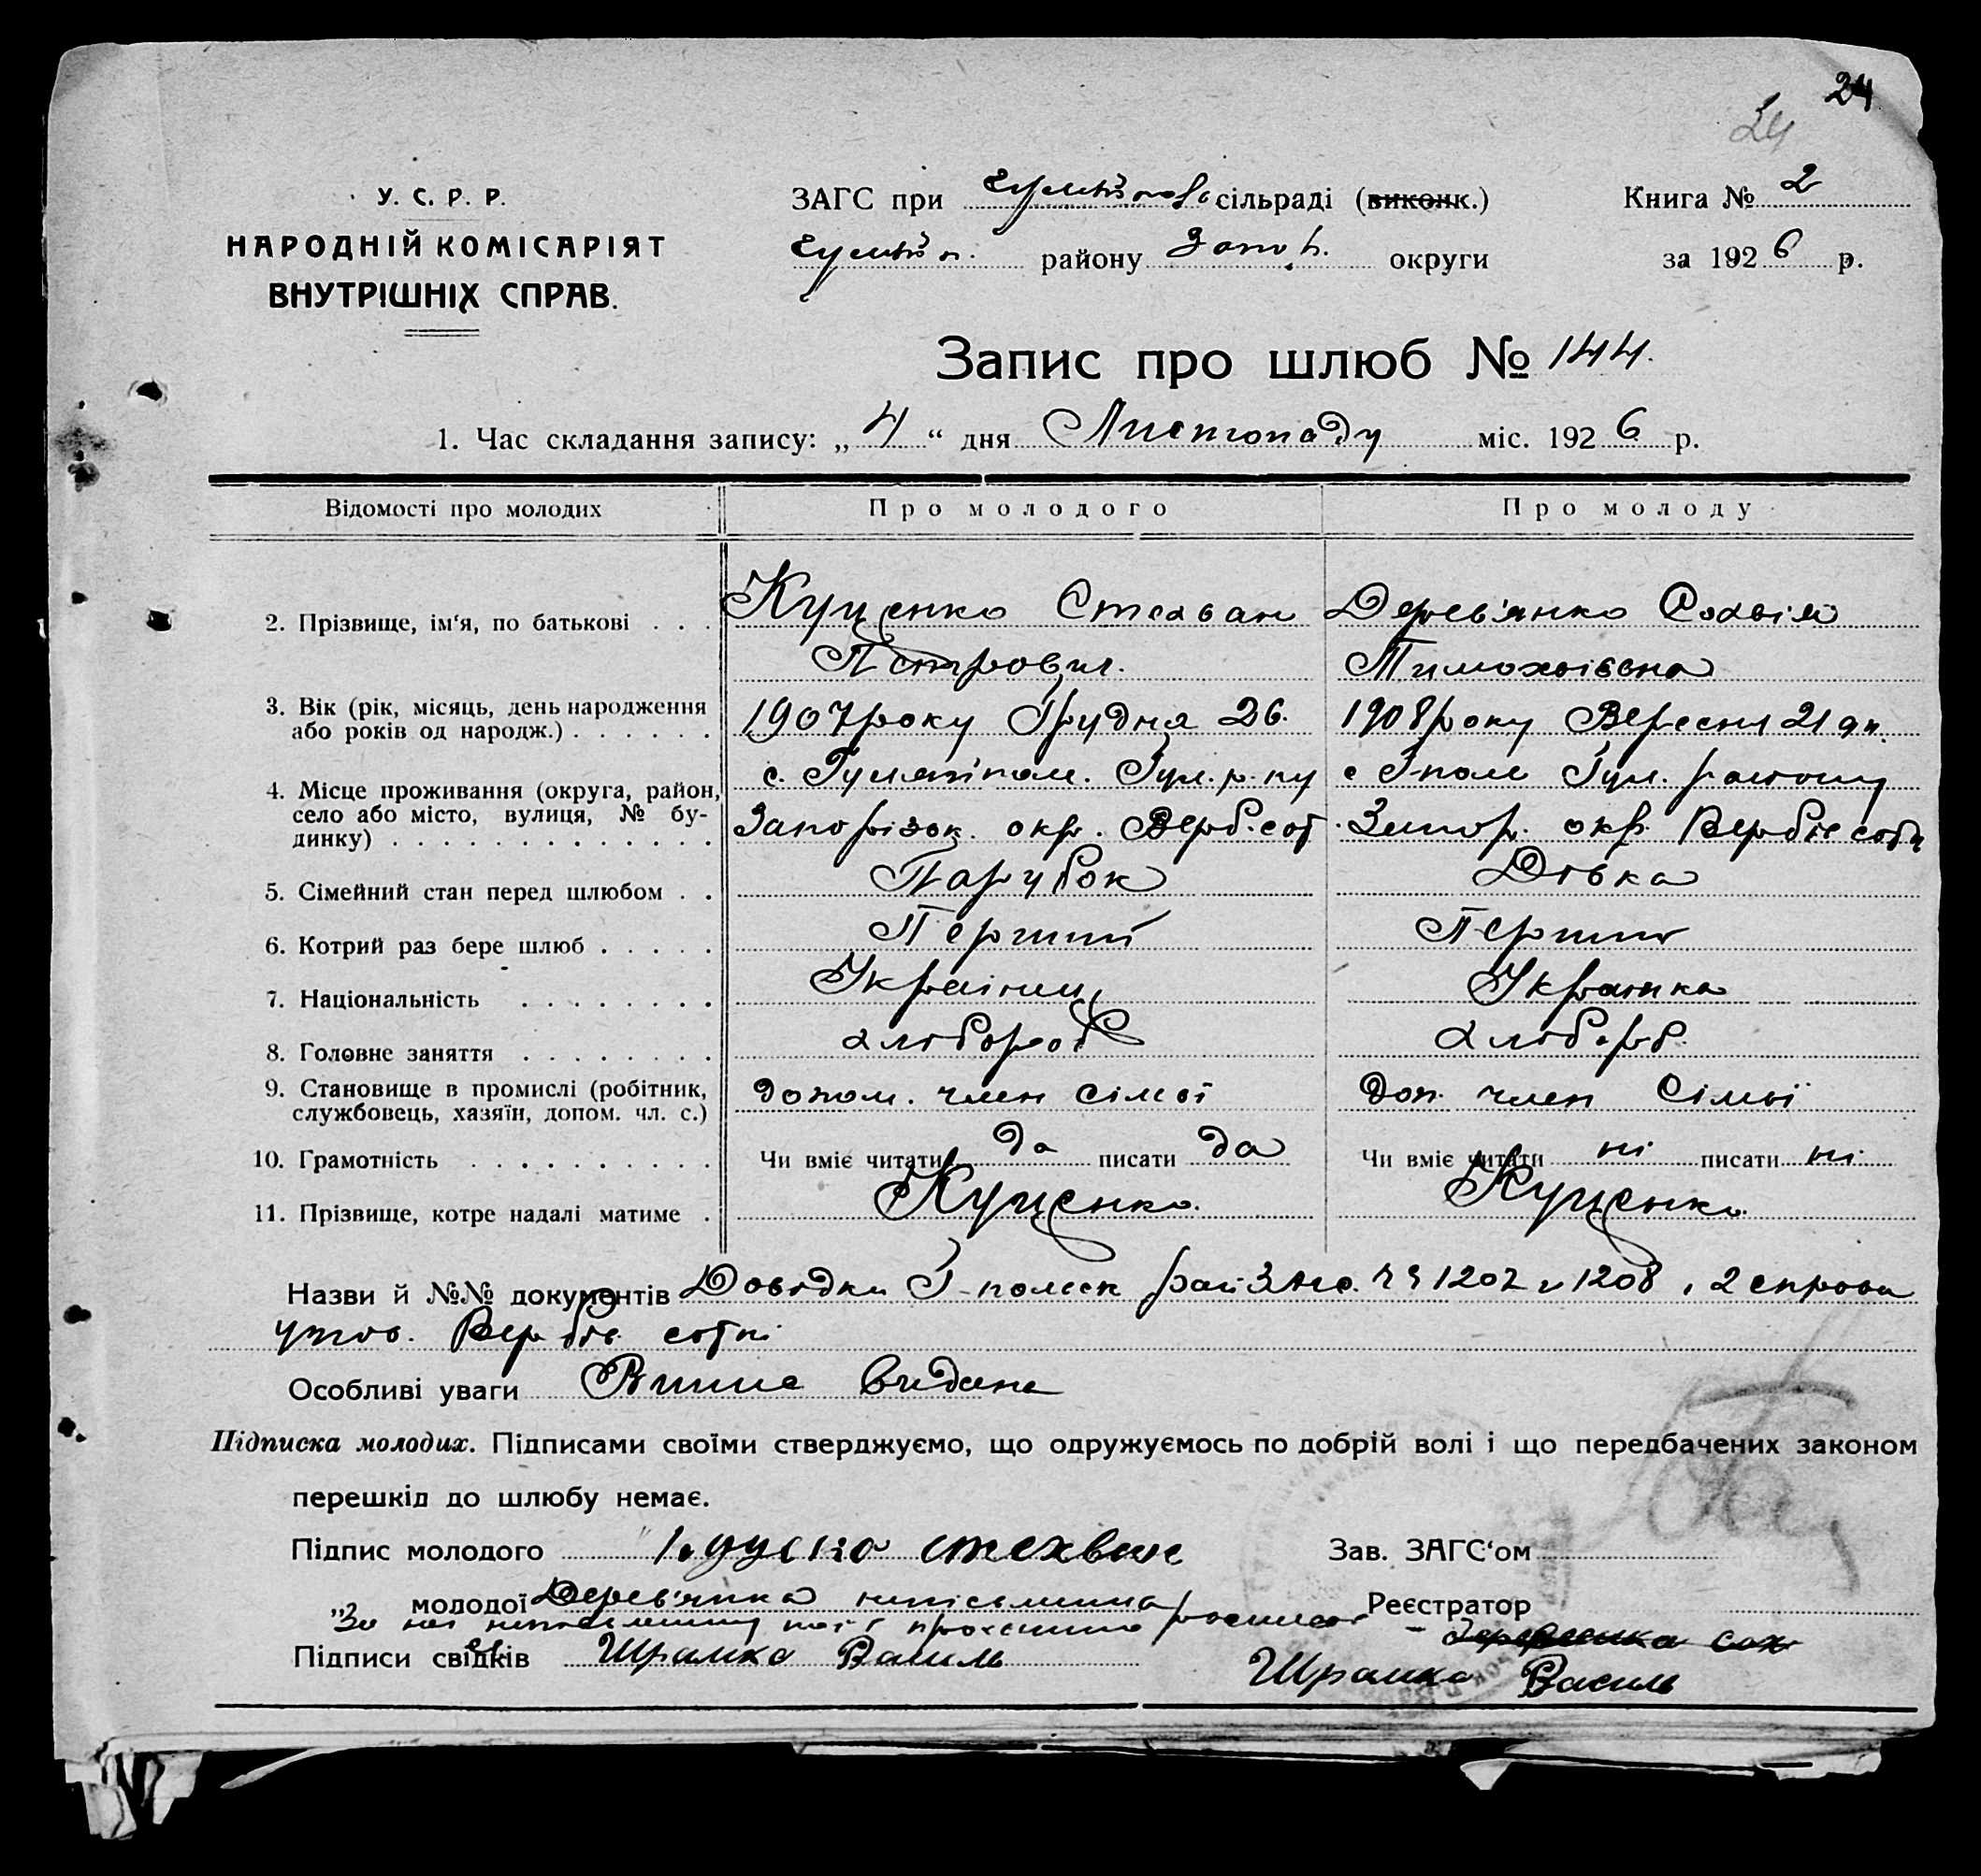 24
24
У. С. Р. Р.
НАРОДНІЙ КОМІСАРІЯТ
ВНУТРІШНІХ СПРАВ.
ЗАГС при сільраді (виконк.)
району Запор. округи
Книга № 2
за 1926 р.
Запис про шлюб № 144.
1. Час складання запису: „4“ дня Листопаду міс. 1926 р.
Відомості про молодих Про молодого Про молоду
2. Прізвище, ім'я, по батькові . . . Куценко Стехван Дерев'янко Сохвія
Петрович. Тимохвіївна
3. Вік (рік, місяць, день народження
або років од народж.) . . . . . . 1907 року Грудня 26. 1908 року Вересня 21 дн.
с. Гуляйпом. Гул. р-ну с Г-пом Гул. району
4. Місце проживання (округа, район,
село або місто, вулиця, № бу-
динку) . . . . . . . . . . . . . Запорізьк. окр. Верб. сот. Запор. окр. Вербів сотн
5. Сімейний стан перед шлюбом . . Парубок Дівка
6. Котрий раз бере шлюб . . . . . Перший Перший
7. Національність . . . . . . . . Українец Українка
8. Головне заняття . . . . . . . . хлібороб хлібороб.
9. Становище в промислі (робітник,
службовець, хазяїн, допом. чл. с.) допом. член сімьї доп. член сімьї
10. Грамотність . . . . . . . . . . Чи вміє читати да писати да Чи вміє читати ні писати ні
11. Прізвище, котре надалі матиме . Куценко. Куценко.
Назви й №№ документів Довідки Г-польск рай ЗАГС. 1207 и 1208, 2 справи
Вербів. сотні
Особливі уваги Випис видана
Підписка молодих. Підписами своїми стверджуємо, що одружуємось по добрій волі і що передбачених законом
перешкід до шлюбу немає.
Підпис молодого Куценко стехван Зав. ЗАГС'ом
„ молодої Дерев'янка неписьменна Реєстратор
За неї неписьменну по її проханню росписався
Підписи свідків Шрамко Василь
Шрамко Василь